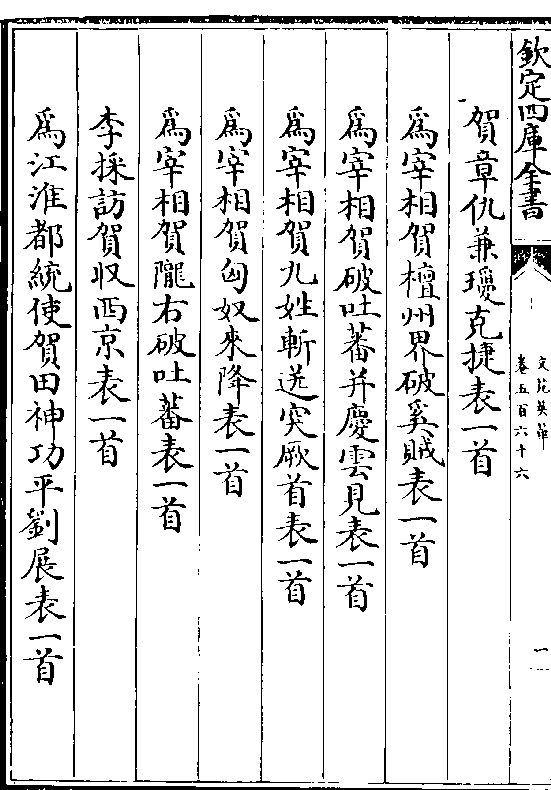 欽定四庫全書
文苑英華
卷五百六十六
一
賀章仇兼瓊克捷表一首
爲宰相賀檀州界破奚賊表一首
爲宰相賀破吐蕃并慶雲見表一首
爲宰相賀九姓斬送突厥首表一首
爲宰相賀匈奴來降表一首
爲宰相賀隴右破吐蕃表一首
李採訪賀収西京表一首
爲江淮都統使賀田神功平劉展表一首